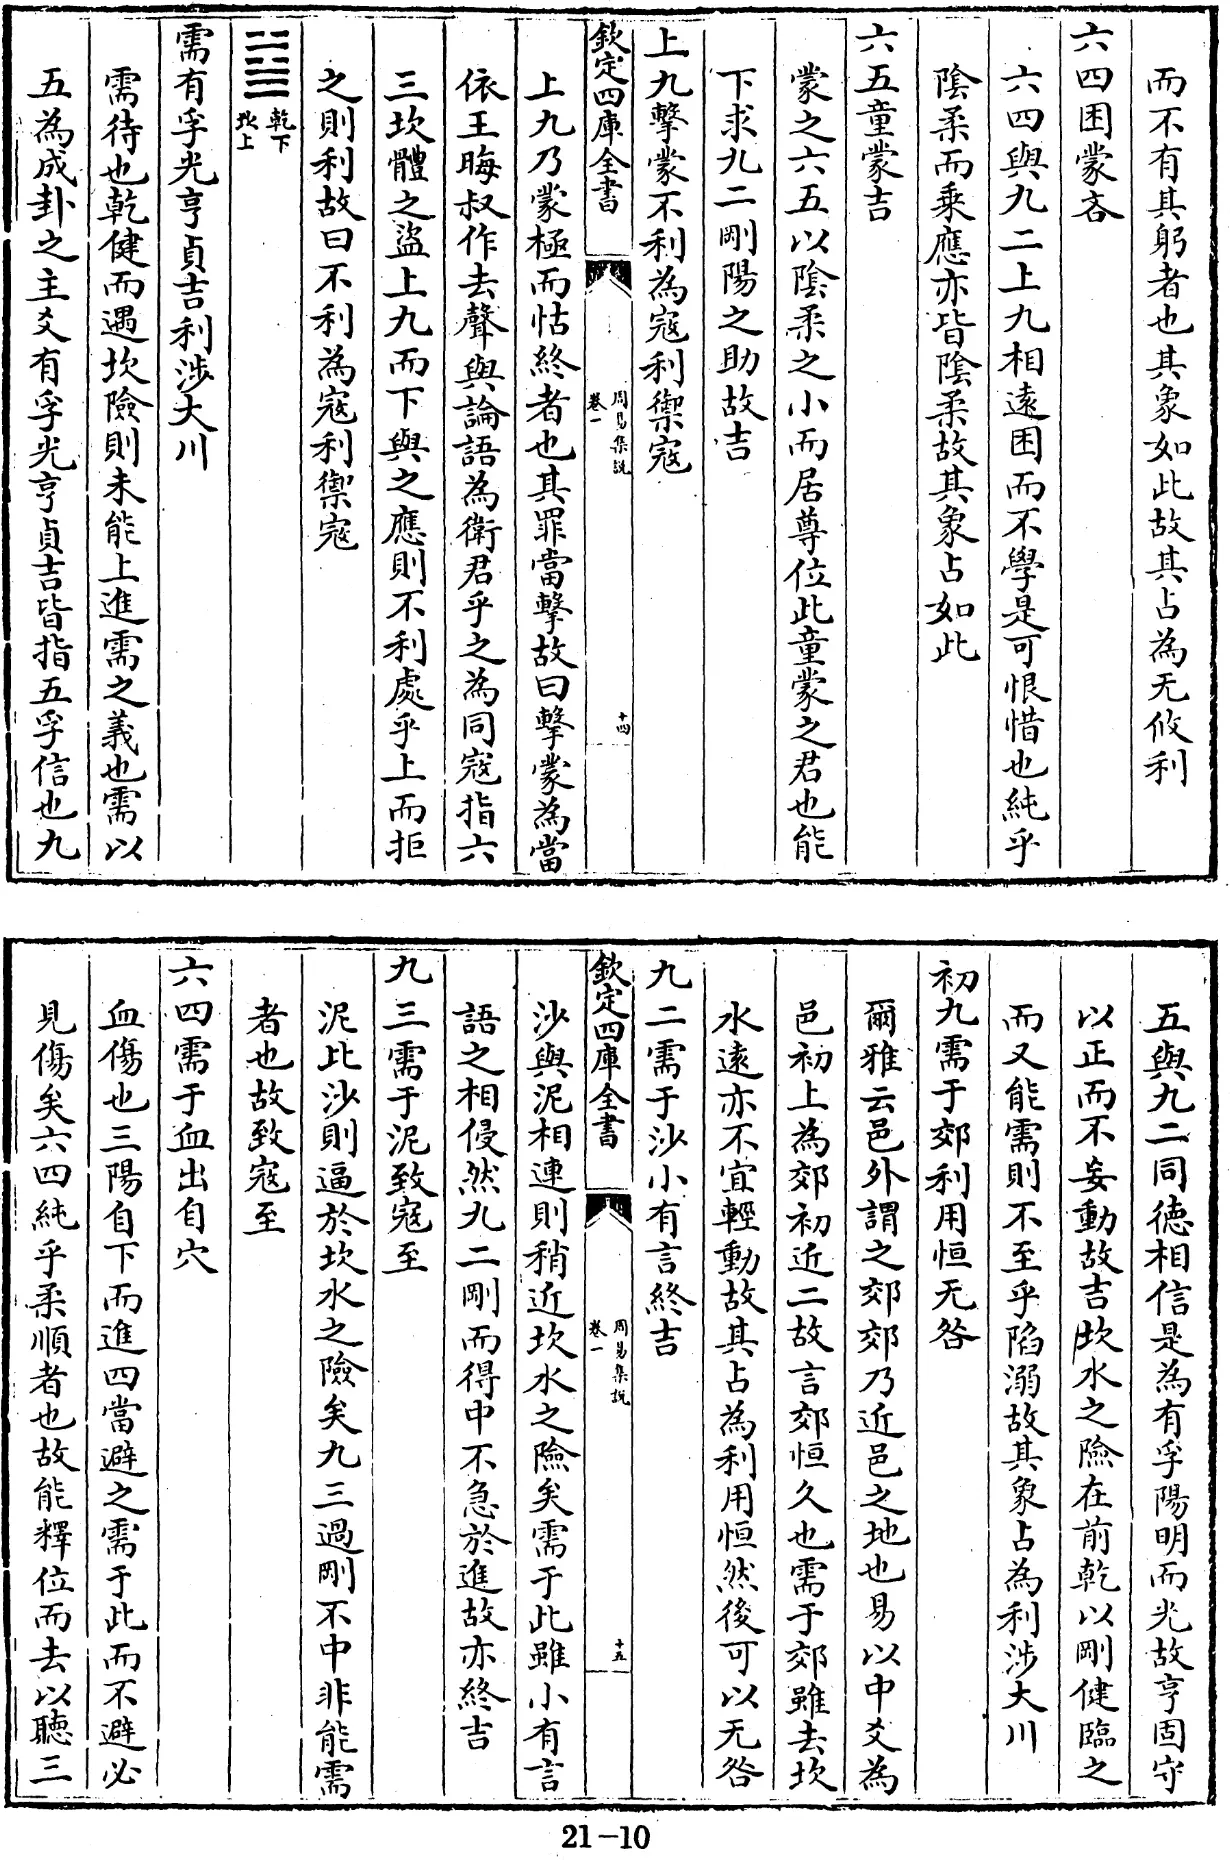 而不有其躬者也其象如此故其占為无攸利
六四困蒙吝
六四與九二上九相遠困而不學是可恨惜也純乎
陰柔而乗應亦皆陰柔故其象占如此
六五童蒙吉
蒙之六五以陰柔之小而居尊位此童蒙之君也能
下求九二剛陽之助故吉
上九擊蒙不利為寇利禦寇
欽定四庫全書
周易集說
卷一
十四
上九乃蒙極而怙終者也其罪當擊故曰擊蒙為當
依王晦叔作去聲與論語為衛君乎之為同寇指六
三坎體之盜上九而下與之應則不利處乎上而拒
之則利故曰不利為寇利禦寇
䷄
乾下
坎上
需有孚光亨貞吉利涉大川
需待也乾健而遇坎險則未能上進需之義也需以
五為成卦之主爻有孚光亨貞吉皆指五孚信也九
五與九二同徳相信是為有孚陽明而光故亨固守
以正而不妄動故吉坎水之險在前乾以剛健臨之
而又能需則不至乎陷溺故其象占為利涉大川
初九需于郊利用恒无咎
爾雅云邑外謂之郊郊乃近邑之地也易以中爻為
邑初上為郊初近二故言郊恒久也需于郊雖去坎
水遠亦不宜輕動故其占為利用恒然後可以无咎
九二需于沙小有言終吉
欽定四庫全書
周易集說
卷一
十五
沙與泥相連則稍近坎水之險矣需于此雖小有言
語之相侵然九二剛而得中不急於進故亦終吉
九三需于泥致寇至
泥比沙則逼於坎水之險矣九三過剛不中非能需
者也故致寇至
六四需于血出自穴
血傷也三陽自下而進四當避之需于此而不避必
見傷矣六四純乎柔順者也故能釋位而去以聽三
21-10